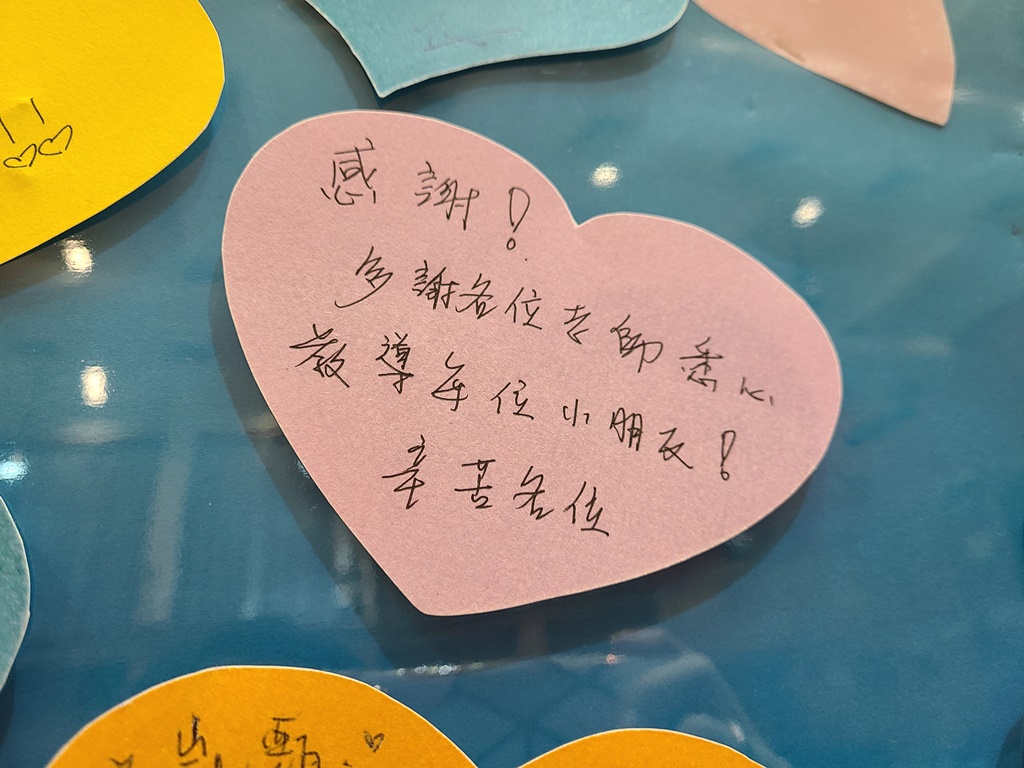 感謝!
多謝各位老師悉心
教導每位小朋友!
辛苦各位